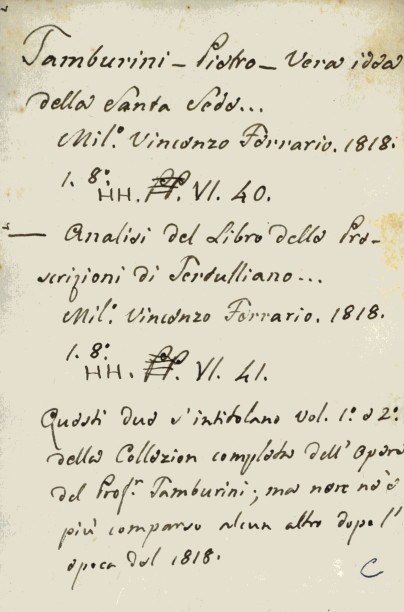 Tamburini - Pietro - Vera idea
della Santa Sede...
Mil.º Vincenzo Ferrario. 1818.
1. 8.º
HH. VI. 40.
— Analisi del Libro delle Pre-
scrizioni di Tertulliano...
Mil.º Vincenzo Ferrario. 1818.
1. 8.º
HH. VI. 41.
Questi due s'intitolano vol. 1.º e 2.º
della Collezion completa dell'Opere
del Prof.r Tamburini; ma non n'è
più comparso alcun altro dopo l'
epoca del 1818.
C